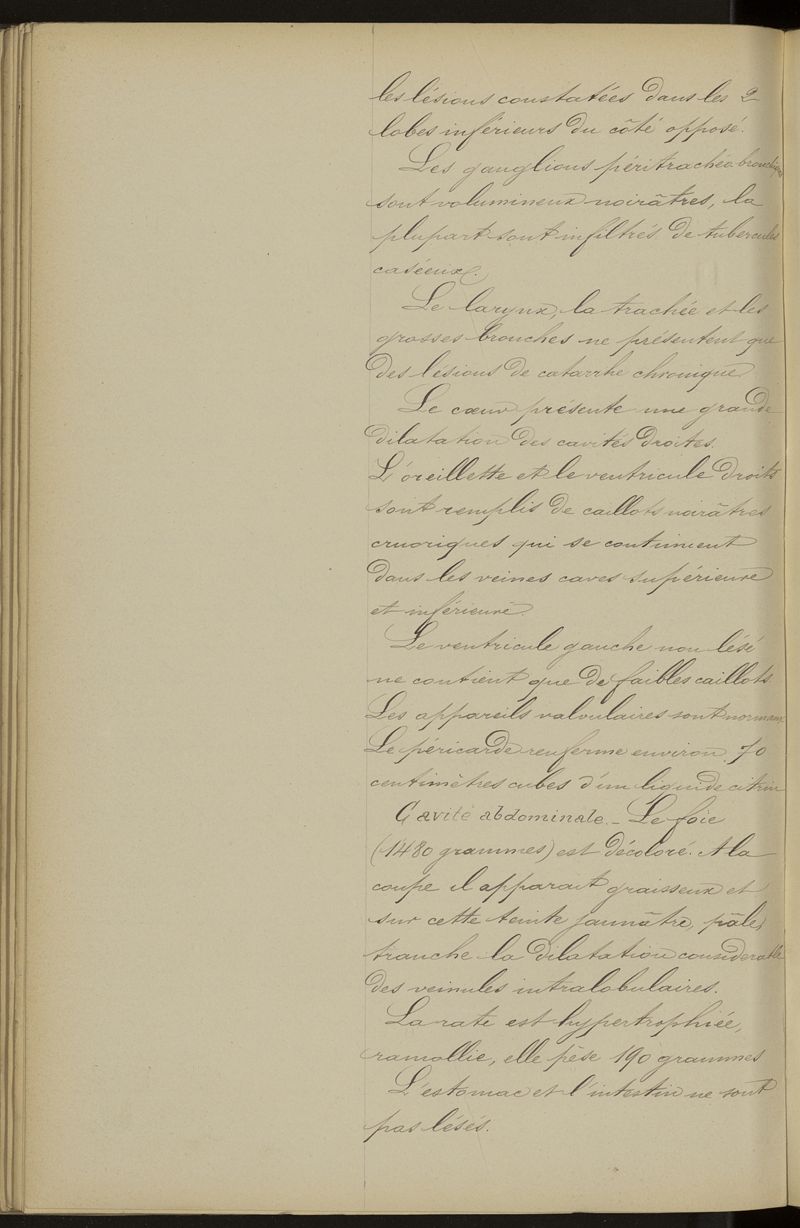 les lésions constatées dans les 2
lobes inférieurs du côté opposé.
Les ganglions péritrachéo-bronchiques
sont volumineux noirâtres, la
plupart sont infiltrés de tubercules
caséeux.
Le larynx, la trachée et les
grosses bronches ne présentent que
des lésions de catarrhe chronique
Le cœur présente une grande
dilatation des cavités droites.
L'oreillette et le ventricule droits
sont remplis de caillots noirâtres
cruoriques qui se continuent
dans les veines caves supérieure
et inférieure.
Le ventricule gauche non lésé
ne contient que de faibles caillots
Les appareils valvulaires sont normaux
Le péricarde renferme environ 70
centimètres cubes d'un liquide citrin
Cavité abdominale. - Le foie
(1480 grammes) est décoloré. A la
coupe il apparait graisseux et
sur cette teinte jaunâtre, pâle,
tranche la dilatation considerable
des veinules intralobulaires.
La rate est hypertrophiée,
ramollie, elle pèse 190 grammes
L'estomac et l'intestin ne sont
pas lésés.